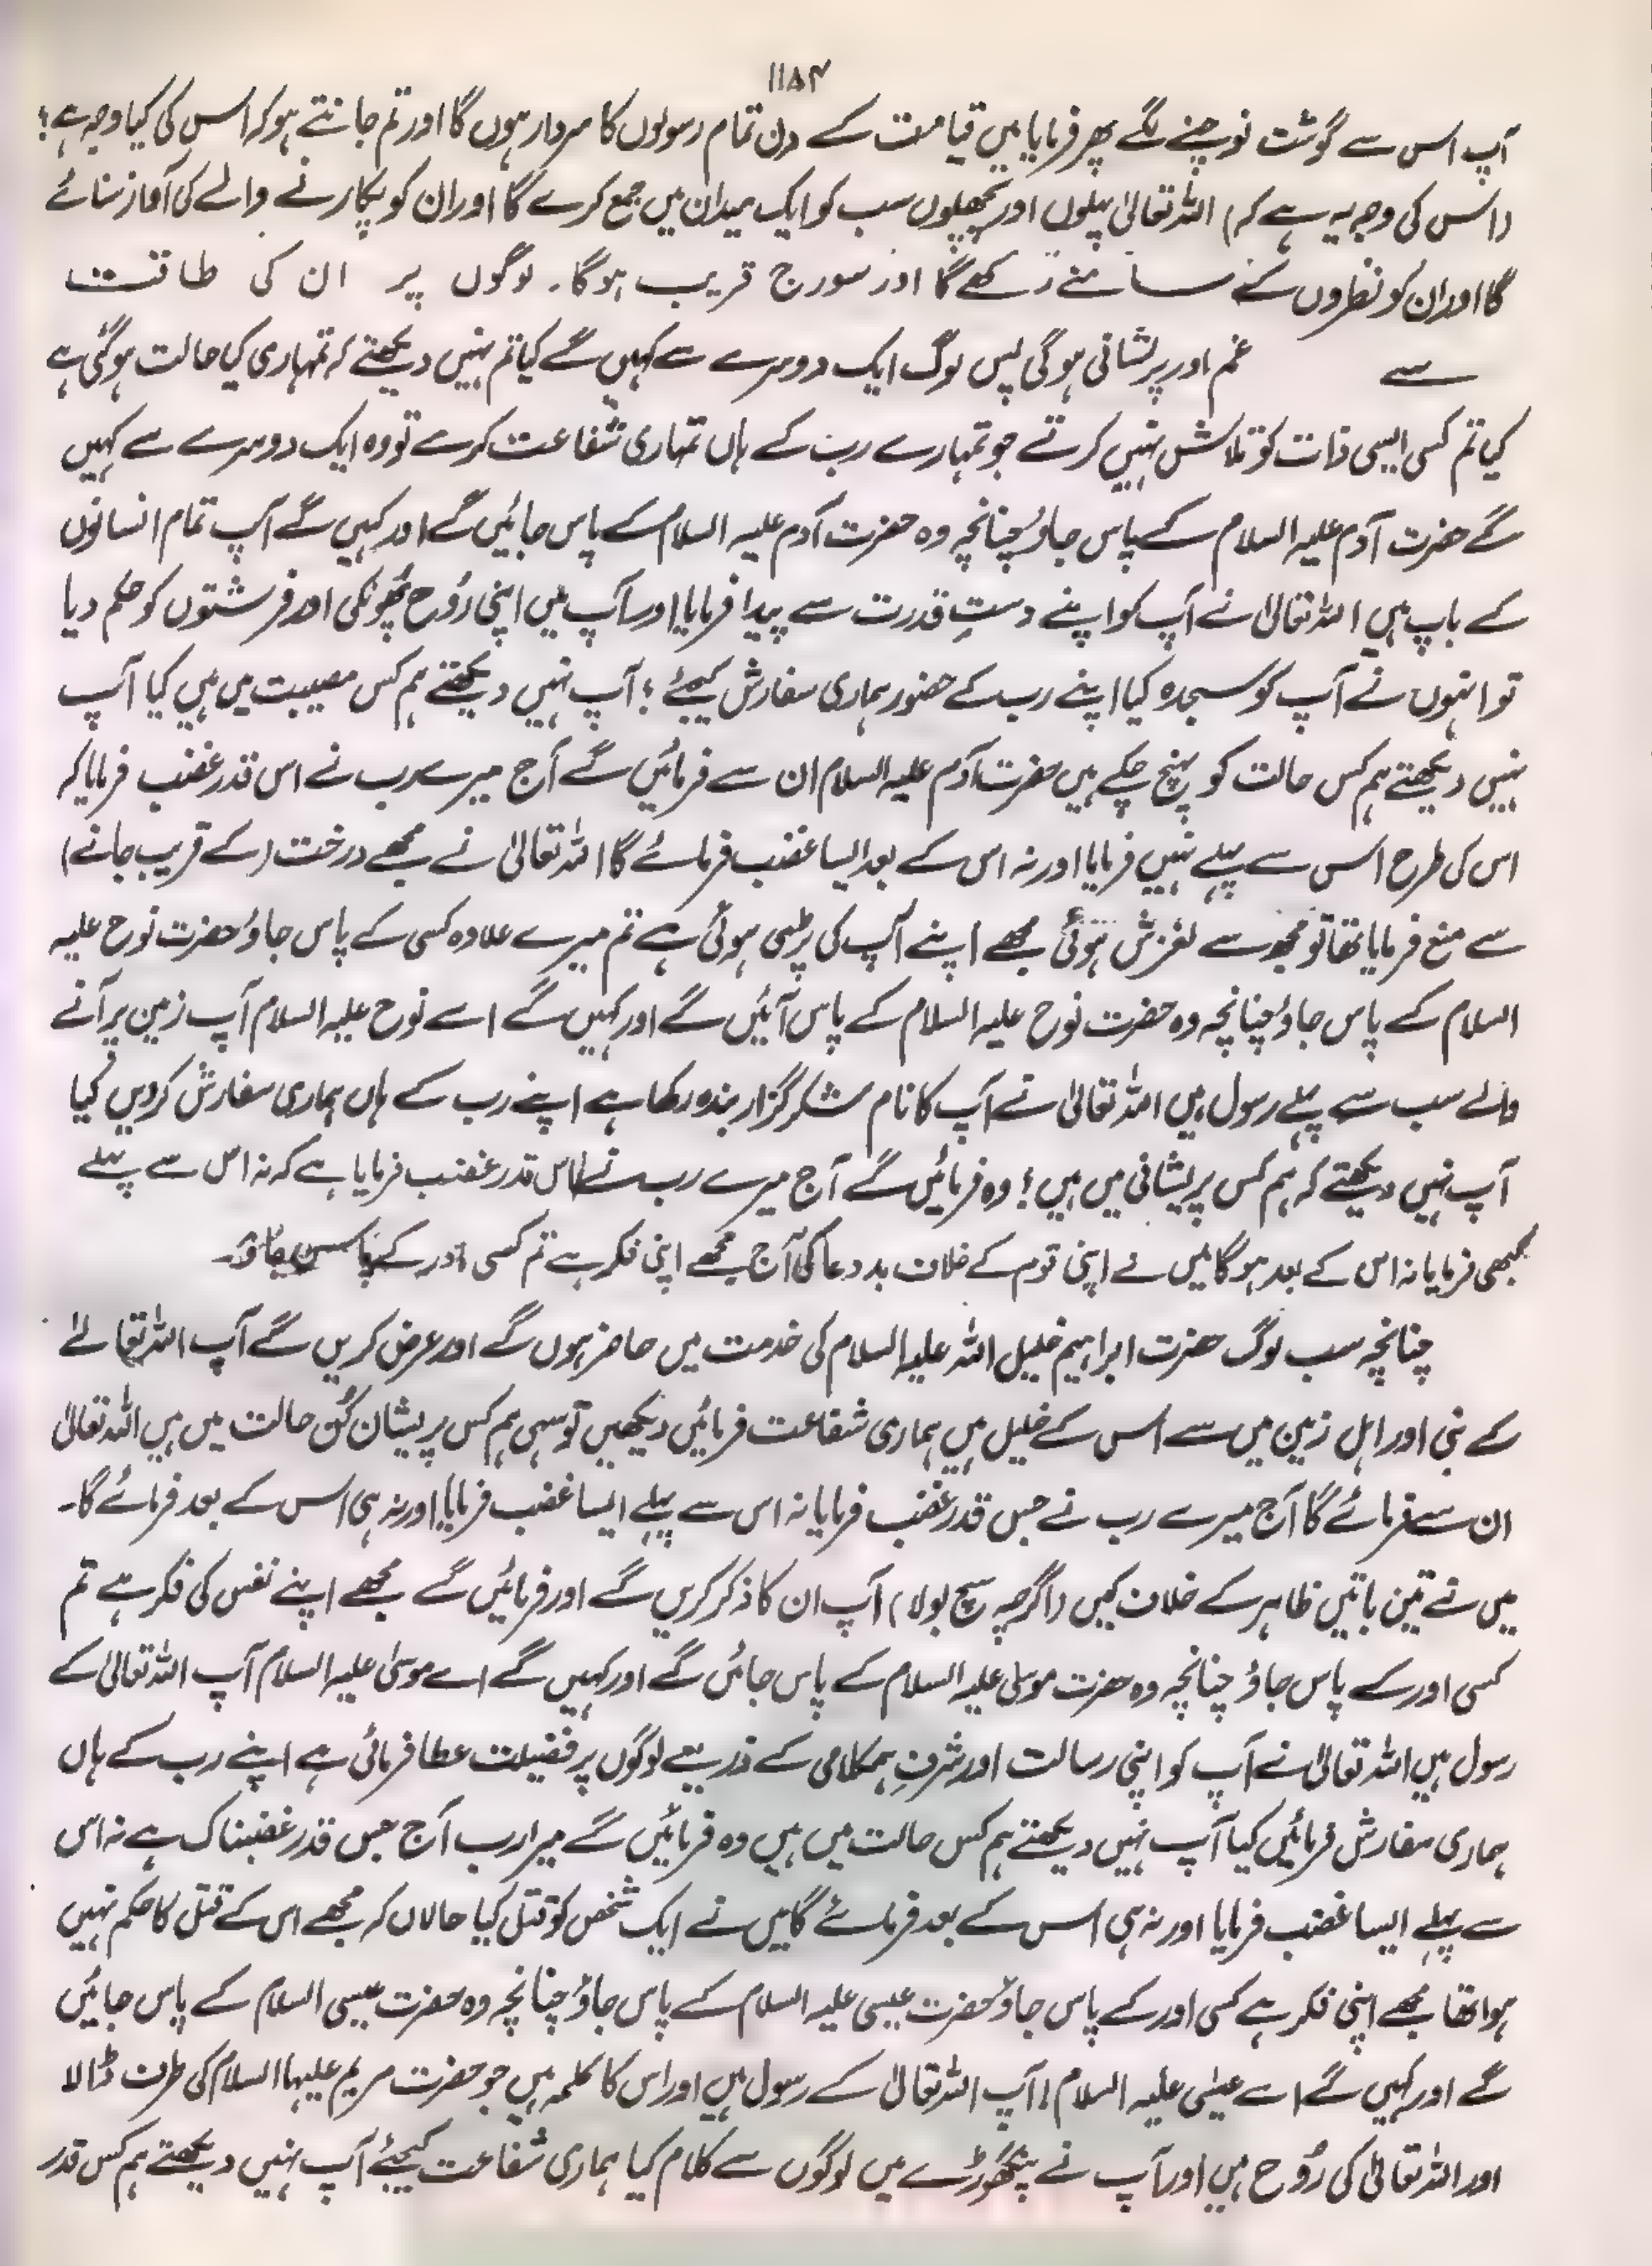 ۱۱۸۴
آپ اس سے گوشت نوچنے لگے پھر فرمایا میں قیامت کے دن تمام رسولوں کا سردار ہوں گا اور تم جانتے ہو کہ اس کی کیا وجہ ہے؟
(اس کی وجہ یہ ہے کہ) اللہ تعالیٰ پہلوں اور پچھلوں سب کو ایک میدان میں جمع کرے گا اور ان کو پکارنے والے کی آواز سنائے
گا اور ان کو نظروں کے سامنے رکھے گا اور سورج قریب ہوگا۔ لوگوں پر ان کی طاقت
سے غم اور پریشانی ہوگی پس لوگ ایک دوسرے سے کہیں گے کیا تم نہیں دیکھتے کہ تمہاری کیا حالت ہوگئی ہے
کیا تم کسی ایسی ذات کو تلاش نہیں کرتے جو تمہارے رب کے ہاں تمہاری شفاعت کرے تو وہ ایک دوسرے سے کہیں
گے حضرت آدم علیہ السلام کے پاس جاؤ چنانچہ وہ حضرت آدم علیہ السلام کے پاس جائیں گے اور کہیں گے آپ تمام انسانوں
کے باپ ہیں اللہ تعالیٰ نے آپ کو اپنے دستِ قدرت سے پیدا فرمایا اور آپ میں اپنی رُوح پھُونکی اور فرشتوں کو حکم دیا
تو انہوں نے آپ کو سجدہ کیا اپنے رب کے حضور ہماری سفارش کیجئے؛ آپ نہیں دیکھتے ہم کس مصیبت میں ہیں کیا آپ
نہیں دیکھتے ہم کس حالت کو پہنچ چکے ہیں حضرت آدم علیہ السلام ان سے فرمائیں گے آج میرے رب نے اس قدر غضب فرمایا کہ
اس کی طرح اس سے پہلے نہیں فرمایا اور نہ اس کے بعد ایسا غضب فرمائے گا اللہ تعالیٰ نے مجھے درخت (کے قریب جانے)
سے منع فرمایا تھا تو مجھ سے لغزش ہوئی مجھے اپنے آپ کی پڑی ہوئی ہے تم میرے علاوہ کسی کے پاس جاؤ حضرت نوح علیہ
السلام کے پاس جاؤ چنانچہ وہ حضرت نوح علیہ السلام کے پاس آئیں گے اور کہیں گے اے نوح علیہ السلام آپ زمین پر آنے
والے سب سے پہلے رسول ہیں اللہ تعالیٰ نے آپ کا نام شکر گزار بندہ رکھا ہے اپنے رب کے ہاں ہماری سفارش کردیں کیا
آپ نہیں دیکھتے کہ ہم کس پریشانی میں ہیں؛ وہ فرمائیں گے آج میرے رب نے اس قدر غضب فرمایا ہے کہ نہ اس سے پہلے
کبھی فرمایا نہ اس کے بعد ہوگا میں نے اپنی قوم کے خلاف بد دعا کی آج مجھے اپنی فکر ہے تم کسی اور کے پاس جاؤ۔
چنانچہ سب لوگ حضرت ابراہیم خلیل اللہ علیہ السلام کی خدمت میں حاضر ہوں گے اور عرض کریں گے آپ اللہ تعالےٰ
کے نبی اور اہل زمین میں سے اس کے خلیل ہیں ہماری شفاعت فرمائیں دیکھیں تو سہی ہم کس پریشان کُن حالت میں ہیں اللہ تعالیٰ
ان سے فرمائے گا آج میرے رب نے جس قدر غضب فرمایا نہ اس سے پہلے ایسا غضب فرمایا اور نہ ہی اس کے بعد فرمائے گا۔
میں نے تین باتیں ظاہر کے خلاف کیں (اگرچہ سچ بولا) آپ ان کا ذکر کریں گے اور فرمائیں گے مجھے اپنے نفس کی فکر ہے تم
کسی اور کے پاس جاؤ چنانچہ وہ حضرت موسیٰ علیہ السلام کے پاس جائیں گے اور کہیں گے اے موسیٰ علیہ السلام آپ اللہ تعالیٰ کے
رسول ہیں اللہ تعالیٰ نے آپ کو اپنی رسالت اور شرفِ ہمکلامی کے ذریعے لوگوں پر فضیلت عطا فرمائی ہے اپنے رب کے ہاں
ہماری سفارش فرمائیں کیا آپ نہیں دیکھتے ہم کس حالت میں ہیں وہ فرمائیں گے میرا رب آج جس قدر غضبناک ہے نہ اس
سے پہلے ایسا غضب فرمایا اور نہ ہی اس کے بعد فرمائے گا میں نے ایک شخص کو قتل کیا حالاں کہ مجھے اس کے قتل کا حکم نہیں
ہوا تھا مجھے اپنی فکر ہے کسی اور کے پاس جاؤ حضرت عیسی علیہ السلام کے پاس جاؤ چنانچہ وہ حضرت عیسی السلام کے پاس جائیں
گے اور کہیں گے اے عیسٰی علیہ السلام! آپ اللہ تعالیٰ کے رسول ہیں اور اس کا کلمہ ہیں جو حضرت مریم علیہا السلام کی طرف ڈالا
اور اللہ تعالیٰ کی رُوح ہیں اور آپ نے پنگھوڑے میں لوگوں سے کلام کیا ہماری شفاعت کیجئے آپ نہیں دیکھتے ہم کس قدر